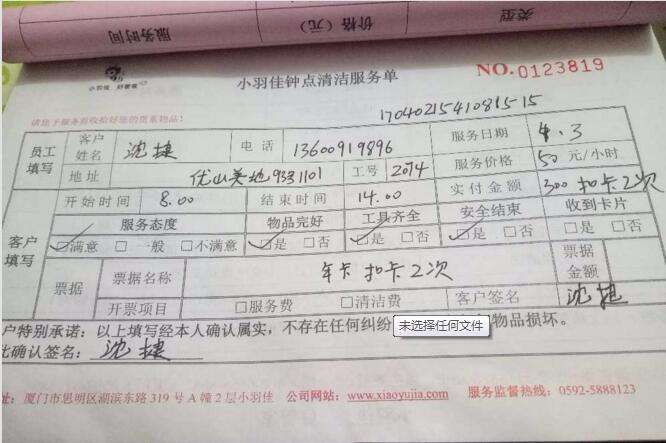 类型
价格（元）
服务时间
小羽佳 好管家
小羽佳钟点清洁服务单
NO.0123819
17040215410815-15
员工填写
客户姓名 沈捷 电话 13600919896 服务日期 4.3
地址 优山美地933 1101 工号 2074 服务价格 50元/小时
开始时间 8.00 结束时间 14.00 实付金额 300 扣卡2次
客户填写
服务态度 物品完好 工具齐全 安全结束 收到卡片
满意 一般 不满意 是 否 是 否 是 否 是 否
票据 票据名称 年卡 扣卡2次 票据金额
开票项目 服务费 清洁费 客户签名 沈捷
户特别承诺：以上填写经本人确认属实，不存在任何纠纷
未选择任何文件
物品损坏。
此确认签名：沈捷
址：厦门市思明区湖滨东路319号A幢2层小羽佳 公司网站：www.xiaoyujia.com 服务监督热线：0592-5888123